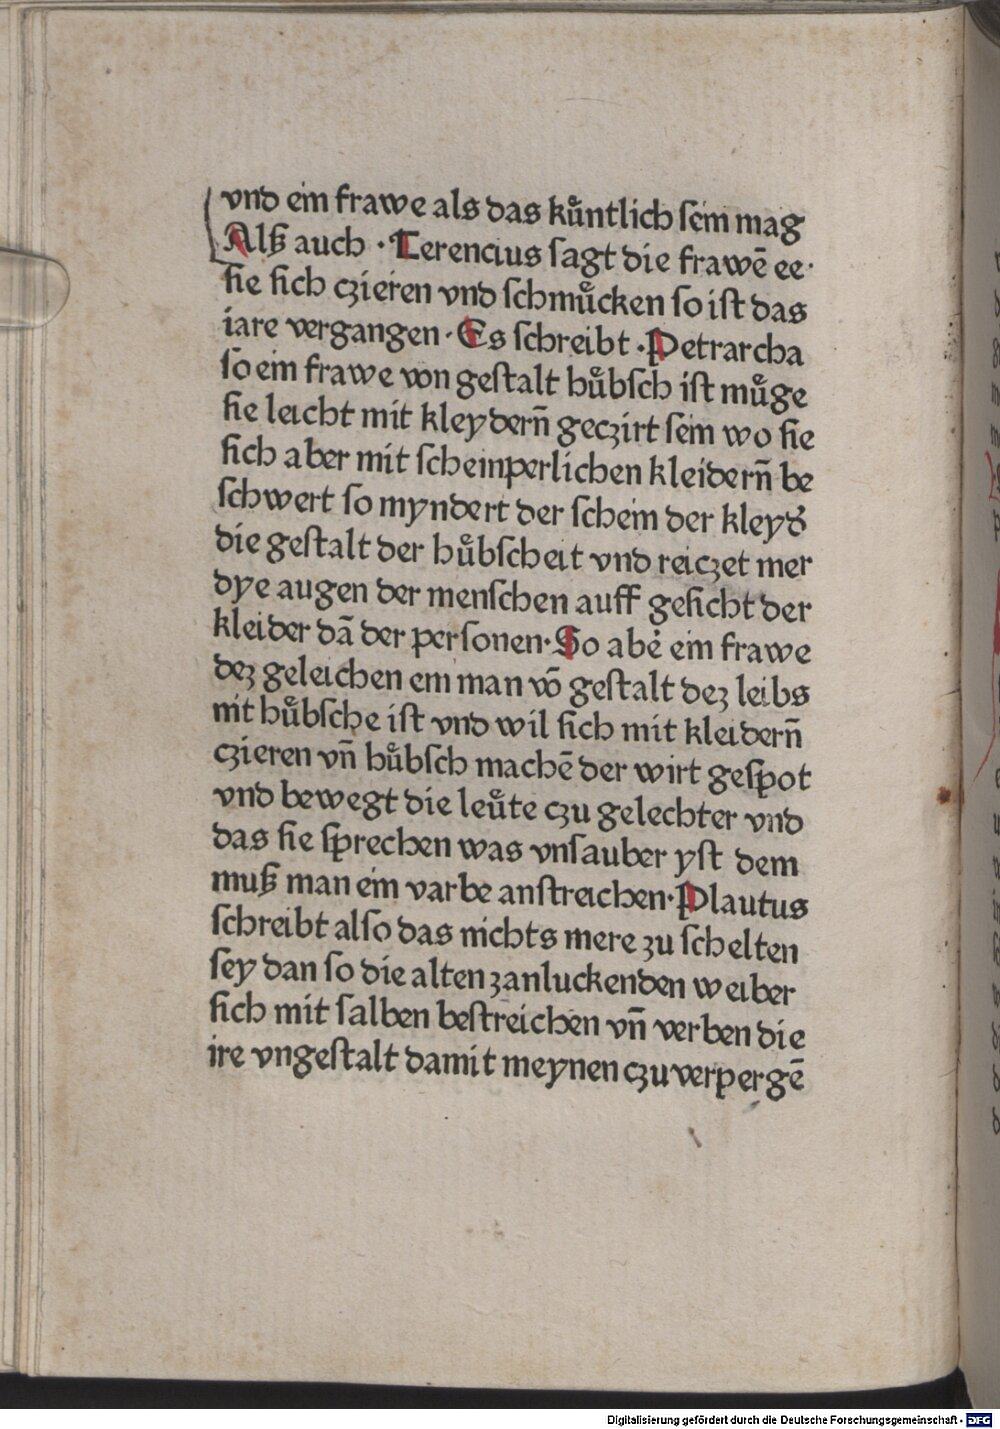 vnd ein frawe als das kůntlich sein mag
Alß auch · Terencius sagt die frawē ee·
sie sich czieren vnd schmůcken so ist das
iare vergangen · Es schreibt · Petrarcha
so ein frawe von gestalt hůbsch ist můge
sie leicht mit kleydern̄ geczirt sein wo sie
sich aber mit scheinperlichen kleidern̄ be
schwert so myndert der schein der kleyd̕
die gestalt der hůbscheit vnd reiczet mer
dye augen der menschen auff gesicht der
kleider dā der personen· So abe᷑ ein frawe
dez geleichen ein man vō gestalt dez leibs
nit hůbsche ist vnd wil sich mit kleidern̄
czieren vn̄ hůbsch machē der wirt gespot
vnd bewegt die leůte czu gelechter vnd
das sie sprechen was vnsauber yst dem
muß man ein varbe anstreichen· Plautus
schreibt also das nichts mere zu schelten
sey dan so die alten zanluckenden weiber
sich mit salben bestreichen vn̄ verben die
ire vngestalt damit meynen czu verpergē
Digitalisierung gefördert durch die Deutsche Forschungsgemeinschaft - DFG